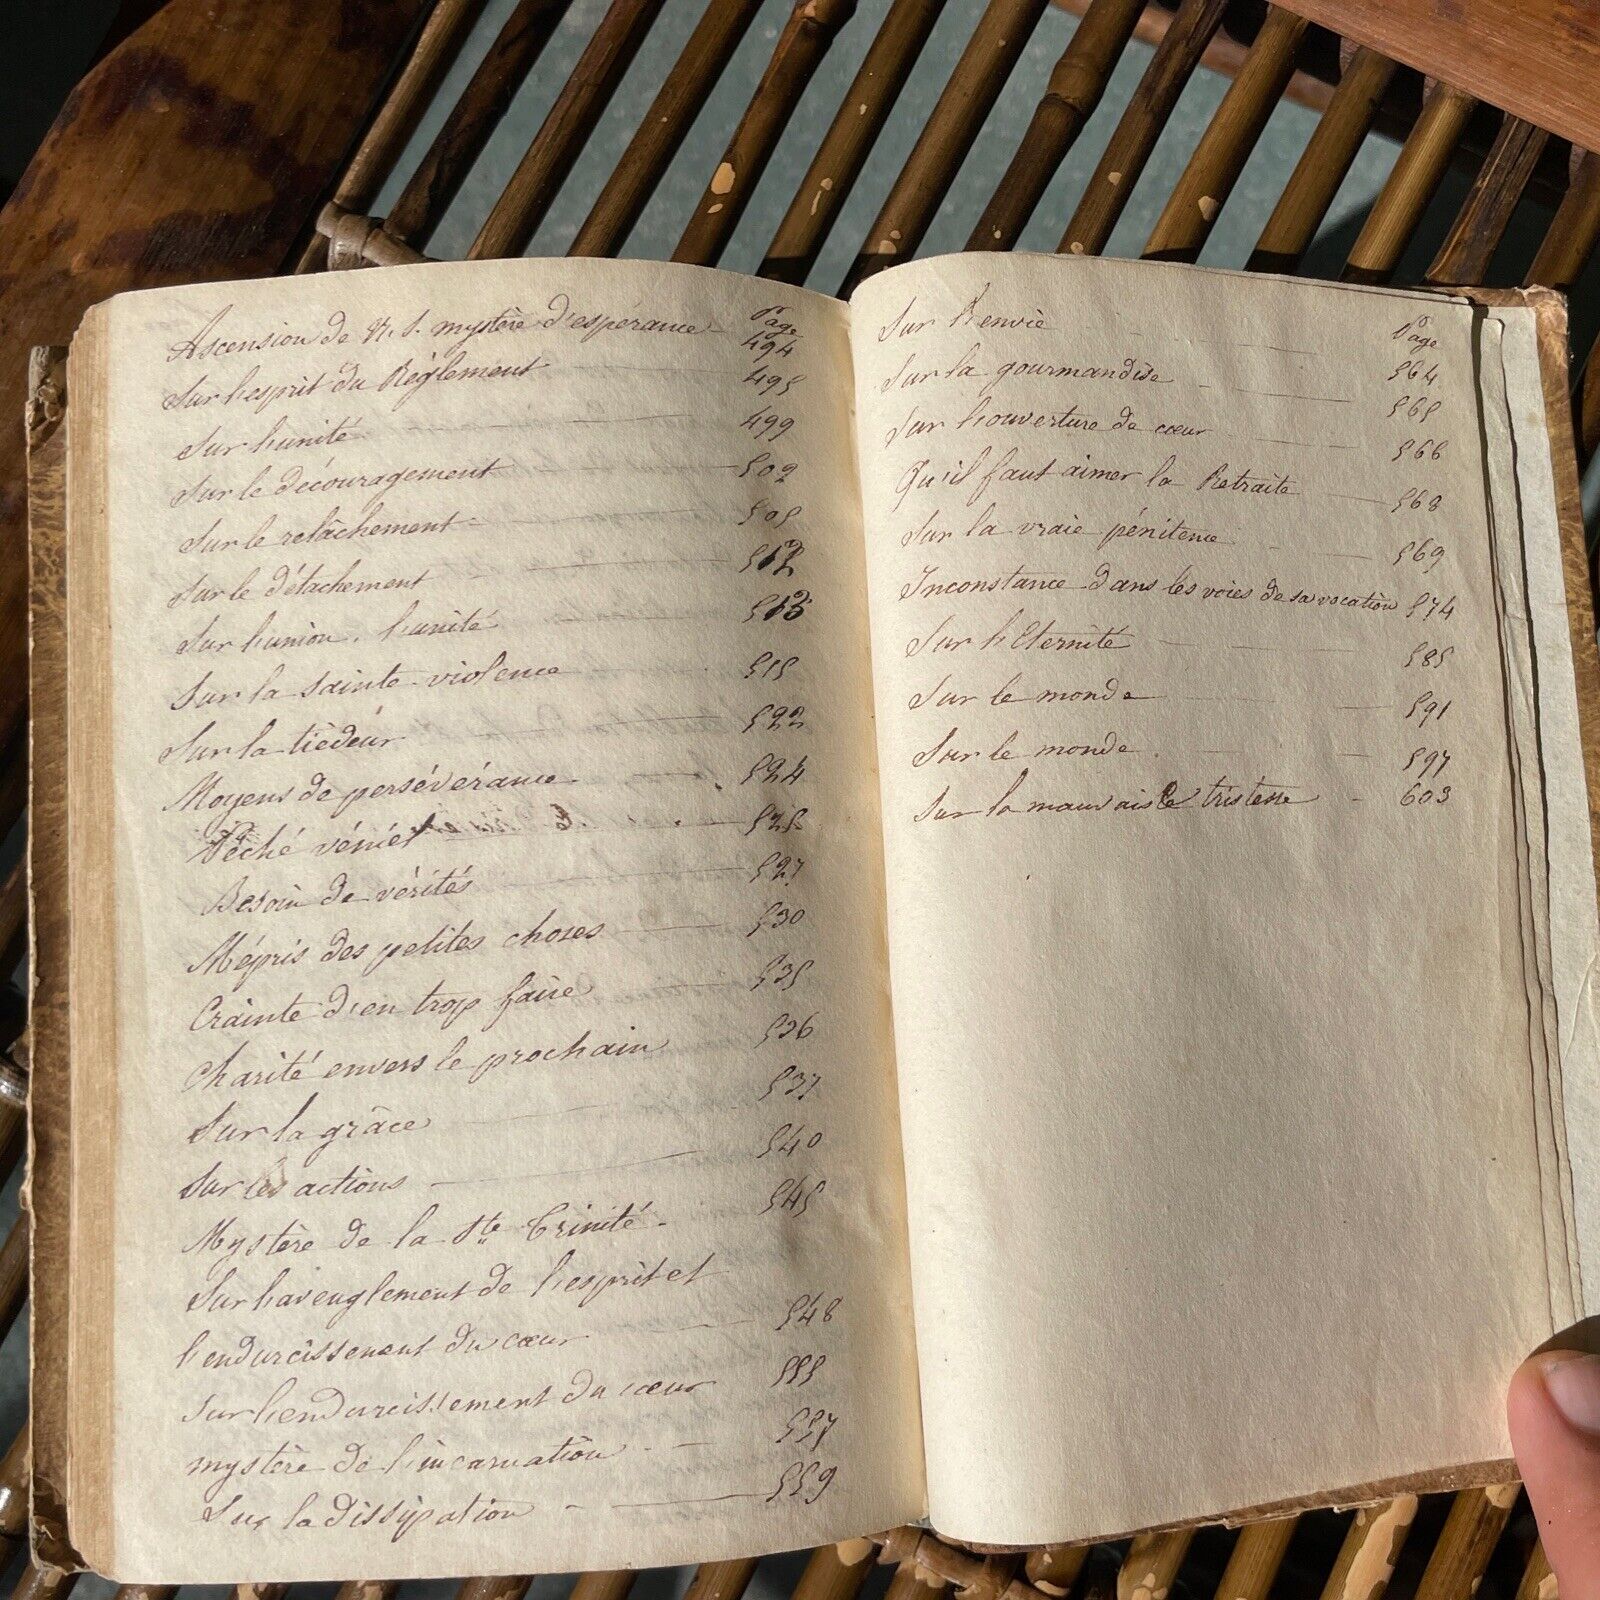 Page
Ascension de N. S. mystère d'espérance 494
Sur l'esprit du Règlement 495
Sur l'unité 499
Sur le découragement 502
Sur le relâchement 505
Sur le détachement 512
Sur l'union, l'unité 513
Sur la sainte violence 515
Sur la tiédeur 522
Moyens de persévérance 524
Péché véniel 525
Besoin de vérités 527
Mépris des petites choses 530
Crainte d'en trop faire 535
Charité envers le prochain 536
Sur la grâce 537
Sur les actions 540
Mystère de la Ste Trinité 545
Sur l'aveuglement de l'esprit et
l'endurcissement du cœur 548
Sur l'endurcissement du cœur 555
mystère de l'incarnation 557
Sur la dissipation 559
Page
Sur l'envie 564
Sur la gourmandise 565
Sur l'ouverture de cœur 566
Qu'il faut aimer la Retraite 568
Sur la vraie pénitence 569
Inconstance dans les voies de sa vocation 574
Sur l'Eternité 585
Sur le monde 591
Sur le monde 597
Sur la mauvaise tristesse 603